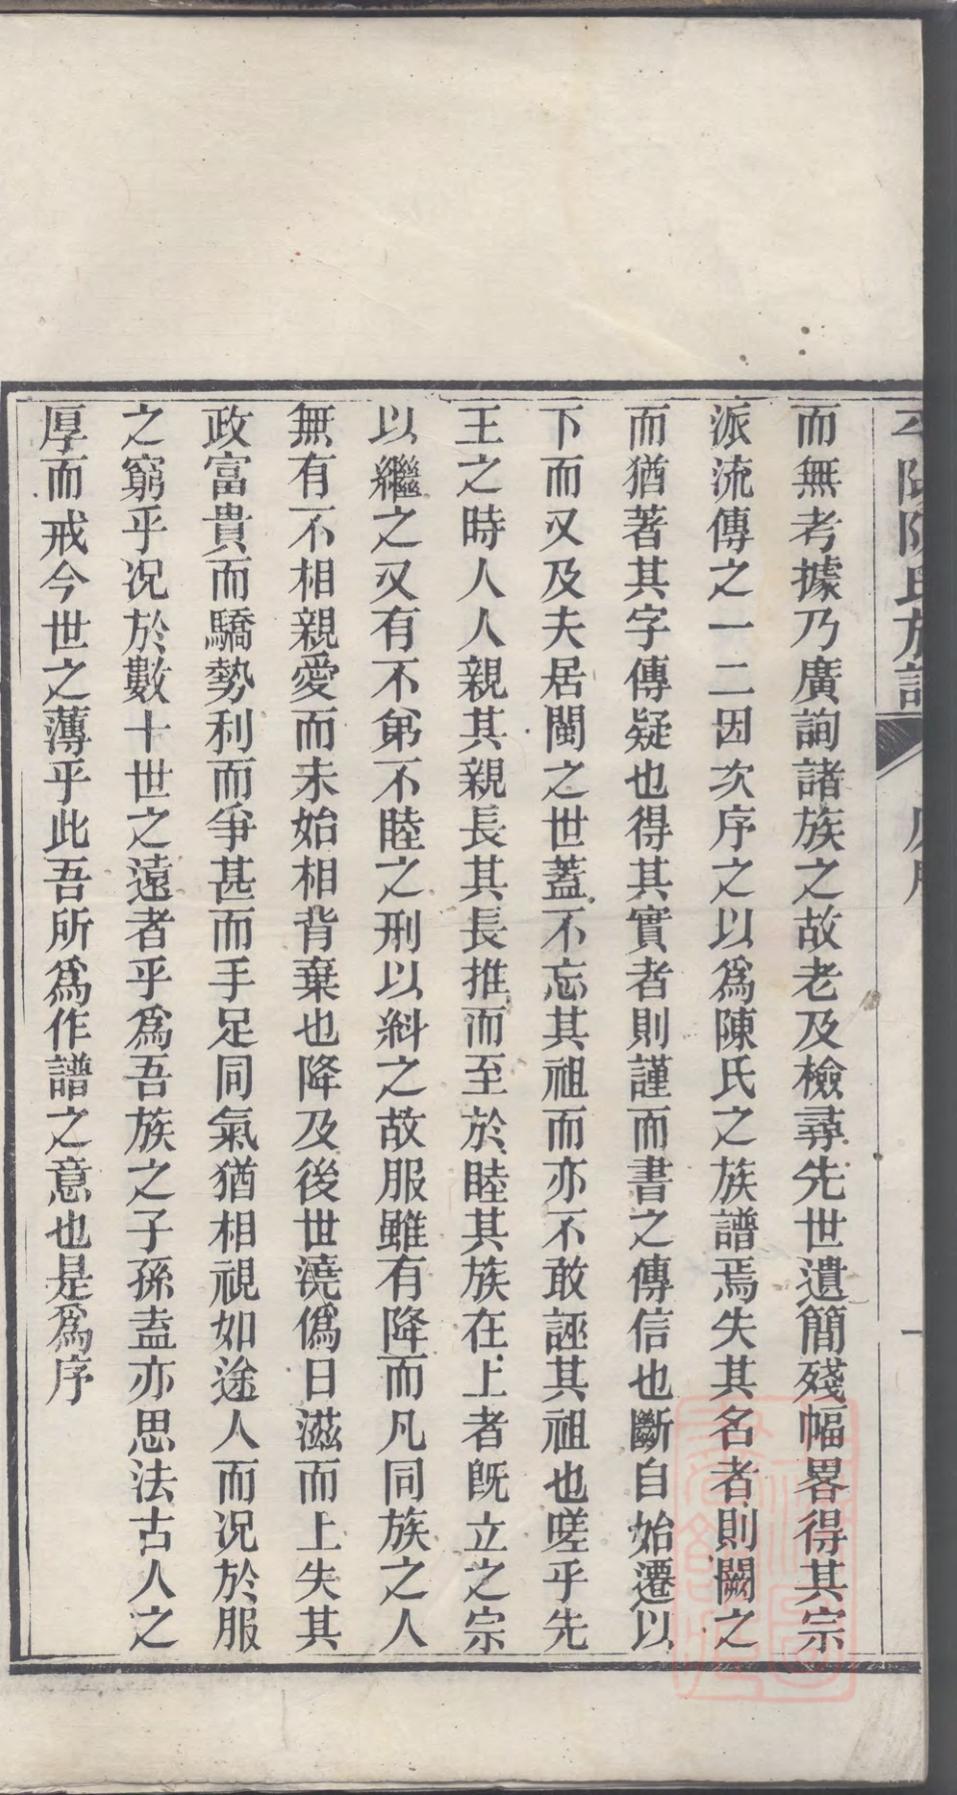 氏族譜
一
而無考據乃廣詢諸族之故老及檢尋先世遺簡殘幅畧得其宗
派流傳之一二因次序之以爲陳氏之族譜焉失其名者則闕之
而猶著其字傳疑也得其實者則謹而書之傳信也斷自始遷以
下而又及夫居閩之世蓋不忘其祖而亦不敢誣其祖也嗟乎先
王之時人人親其親長其長推而至於睦其族在上者旣立之宗
以繼之又有不弟不睦之刑以糾之故服雖有降而凡同族之人
無有不相親愛而未始相背棄也降及後世澆僞日滋而上失其
政富貴而驕勢利而爭甚而手足同氣猶相視如途人而况於服
之窮乎况於數十世之遠者乎爲吾族之子孫盍亦思法古人之
厚而戒今世之薄乎此吾所爲作譜之意也是爲序